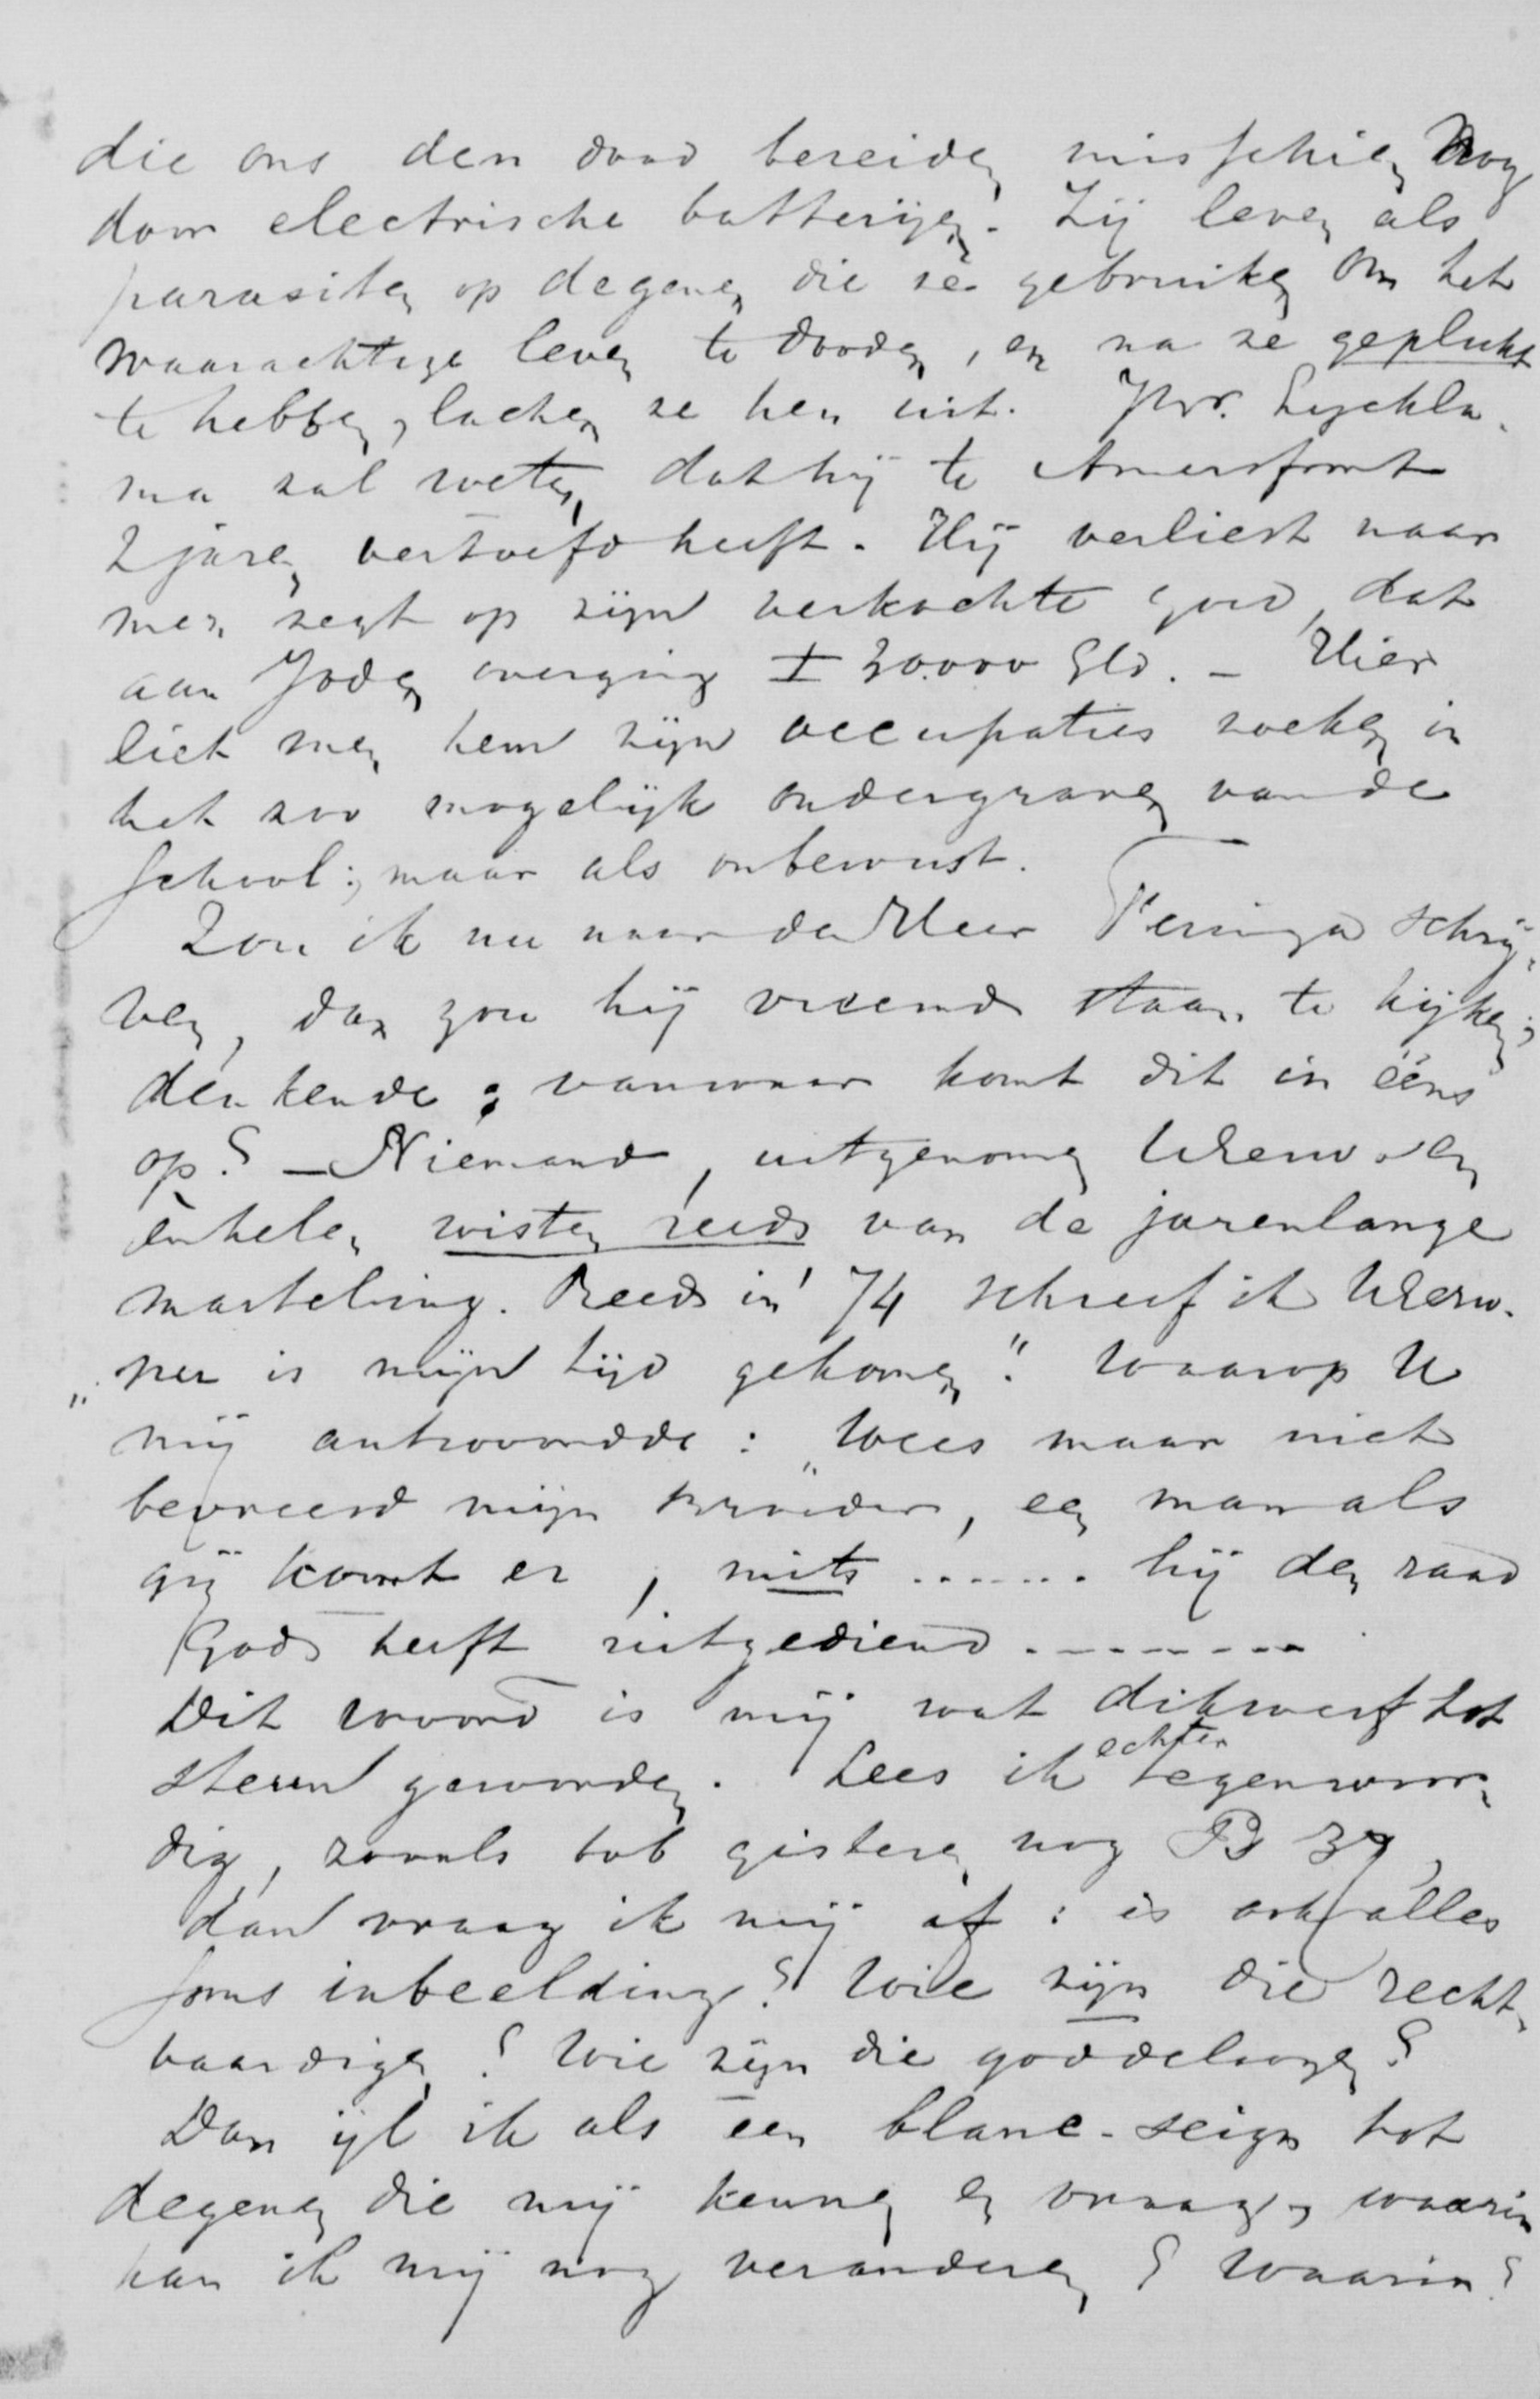 die ons den dood bereiden misschien nog
door electrische batterijen. Zij leven als
parasiten op degenen die ze gebruiken om het
waarachtige leven te dooden, en na ze geplukt
te hebben, lachen ze hen uit. Jhr. Lyckla-
ma zal weten, dat hij te Amersfoort
2 jaren vertoefd heeft. Hij verliest naar
men zegt op zijn verkochte goed, dat
aan Joden overging ± 30.000 Gld. - Hier
liet men hem zijn occupaties zoeken in
het zoo mogelijk ondergraven van de
school; maar als onbewust.
Zou ik nu naar den Heer Teringa schrij-
ven, dan zou hij vreemd staan te kijken;
denkende: vanwaar komt dit in ééns
op? - Niemand, uitgenomen UEerw. en
enkelen wisten reeds van de jarenlange
marteling. Reeds in '74 schreef ik UEerw.
"nu is mijn tijd gekomen". Waarop U
mij antwoordde: "Wees maar niet
bevreesd mijn broeder, een man als
gij komt er, mits ...... hij den raad
Gods heeft uitgediend ........
Dit woord is mij wat dikwerf tot
steun geworden. Lees ik echter tegenwoor-
dig, zooals tot gisteren nog Ps 37,
dan vraag ik mij af: is ook alles
soms inbeelding? Wie zijn die recht-
vaardigen? Wie zijn die goddeloozen?
Dan ijl ik als een blanc-seign tot
degenen die mij kennen en vraag, waarin
kan ik mij nog veranderen? Waarin?